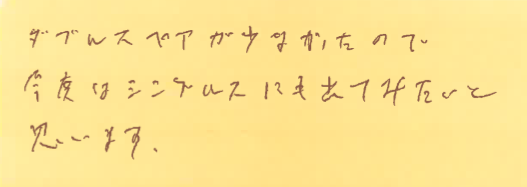 ダブルスペアが少なかったので
今度はシングルスにも出てみたいと
思います.